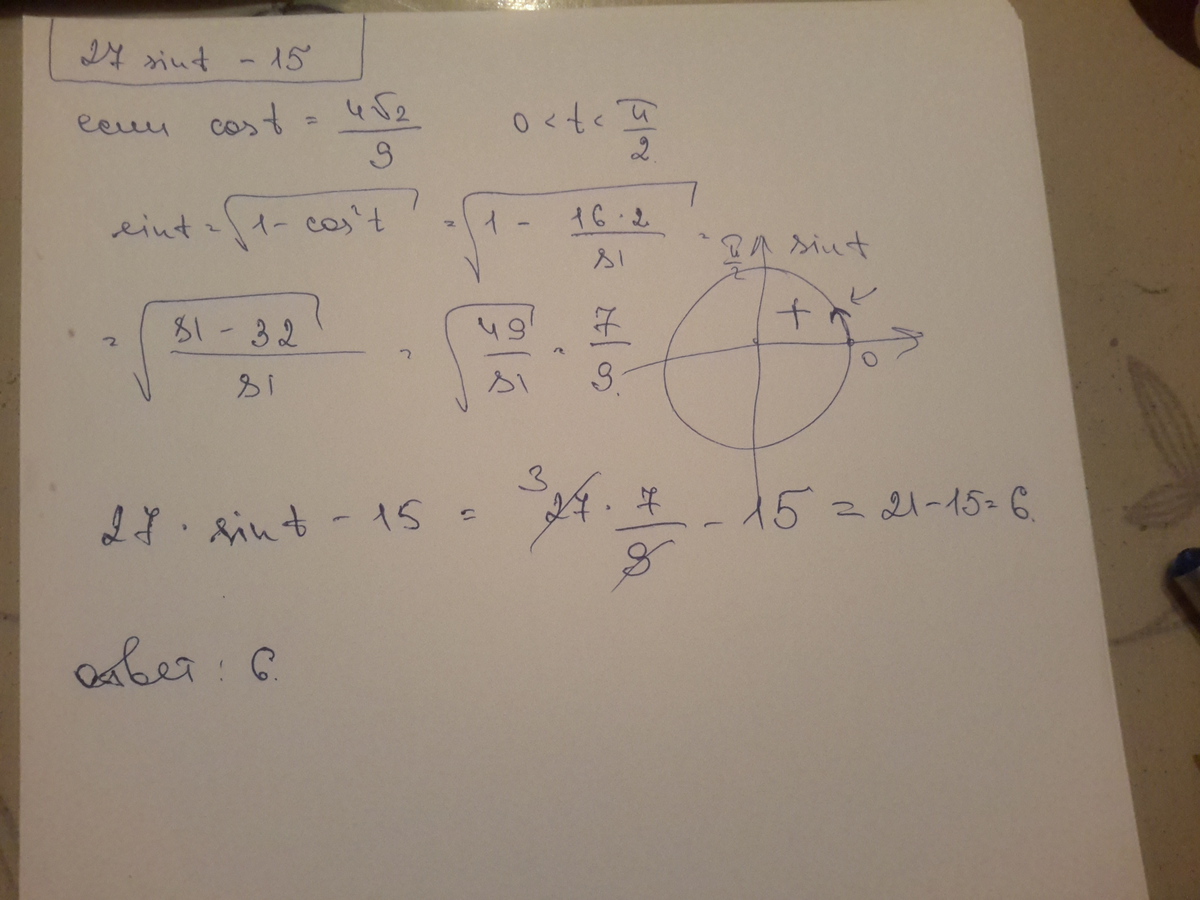 27 sint - 15
если cost = 4√2/9 0 < t < π/2
sint = √(1 - cos²t) = √(1 - 16·2/81) =
= √((81 - 32)/81) = √(49/81) = 7/9.
π/2 sint
+
0
27 · sint - 15 = 27 3 · 7/9 - 15 = 21 - 15 = 6.
ответ: 6.